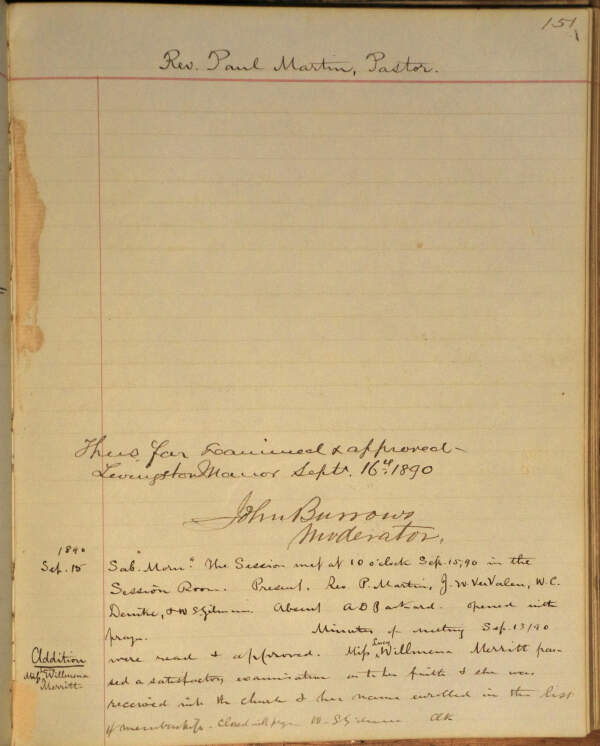 151
Rev. Paul Martin, Pastor.
Thus far Examined & approved -
Livingston Manor Septr. 16th 1890
John Burrows
Moderator,
1890
Sep. 15
Sab. Morng. The Session met at 10 o'clock Sep. 15, 90 in the
Session Room. Present. Rev. P. Martin, J. W. VerValen, W. C.
& W. S. Absent A. D. Packard. Opened with
prayr. Minutes of meeting Sep. 13/90
Addition
Miss Willmena
Merritt
were read & approved. Miss Lucy Willmena Merritt pas-
sed a satisfactory examination as to her faith & she was
received into the church & her name enrolled in the list
of membership. Closed with prayr W. S.